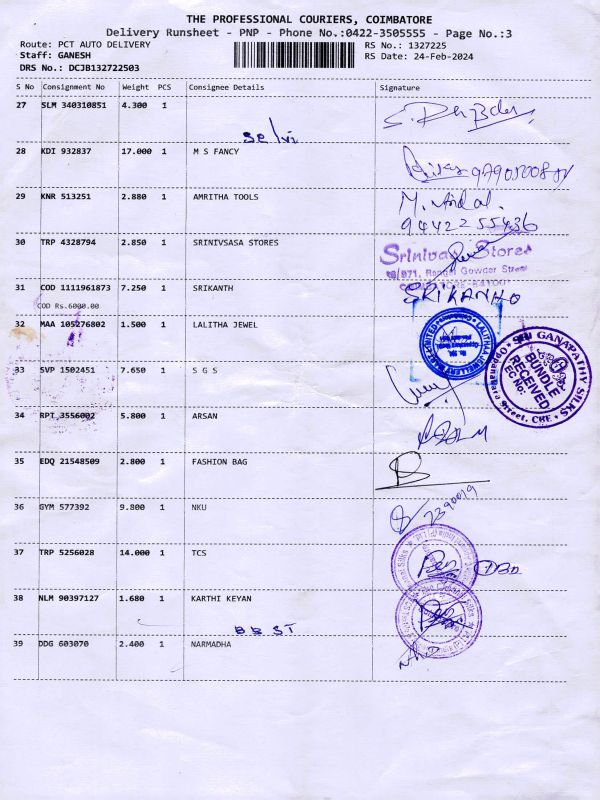 THE PROFESSIONAL COURIERS, COIMBATORE
Delivery Runsheet - PNP - Phone No.:0422-3505555 - Page No.:3
Route: PCT AUTO DELIVERY
RS No.: 1327225
Staff: GANESH
RS Date: 24-Feb-2024
DRS No.: DCJB132722503
S No Consignment No Weight PCS Consignee Details Signature
27 SLM 340310851 4.300 1
Selvi
28 KDI 932837 17.000 1 M S FANCY
29 KNR 513251 2.880 1 AMRITHA TOOLS M.
9442255436
30 TRP 4328794 2.850 1 SRINIVSASA STORES
Srinivasa Stores
Gowder Street
31 COD 1111961873 7.250 1 SRIKANTH SRIKANHO
COD Rs.6000.00
32 MAA 105276802 1.500 1 LALITHA JEWEL
SRI GANAPATHY SILKS
BUNDLE
RECEIVED
Oppanakara Street, CBE
33 SVP 1502451 7.650 1 S G S
34 RPT 3556002 5.800 1 ARSAN
35 EDQ 21548509 2.800 1 FASHION BAG
36 GYM 577392 9.800 1 NKU
37 TRP 5256028 14.000 1 TCS
38 NLM 90397127 1.680 1 KARTHI KEYAN
BBST
39 DDG 603070 2.400 1 NARMADHA